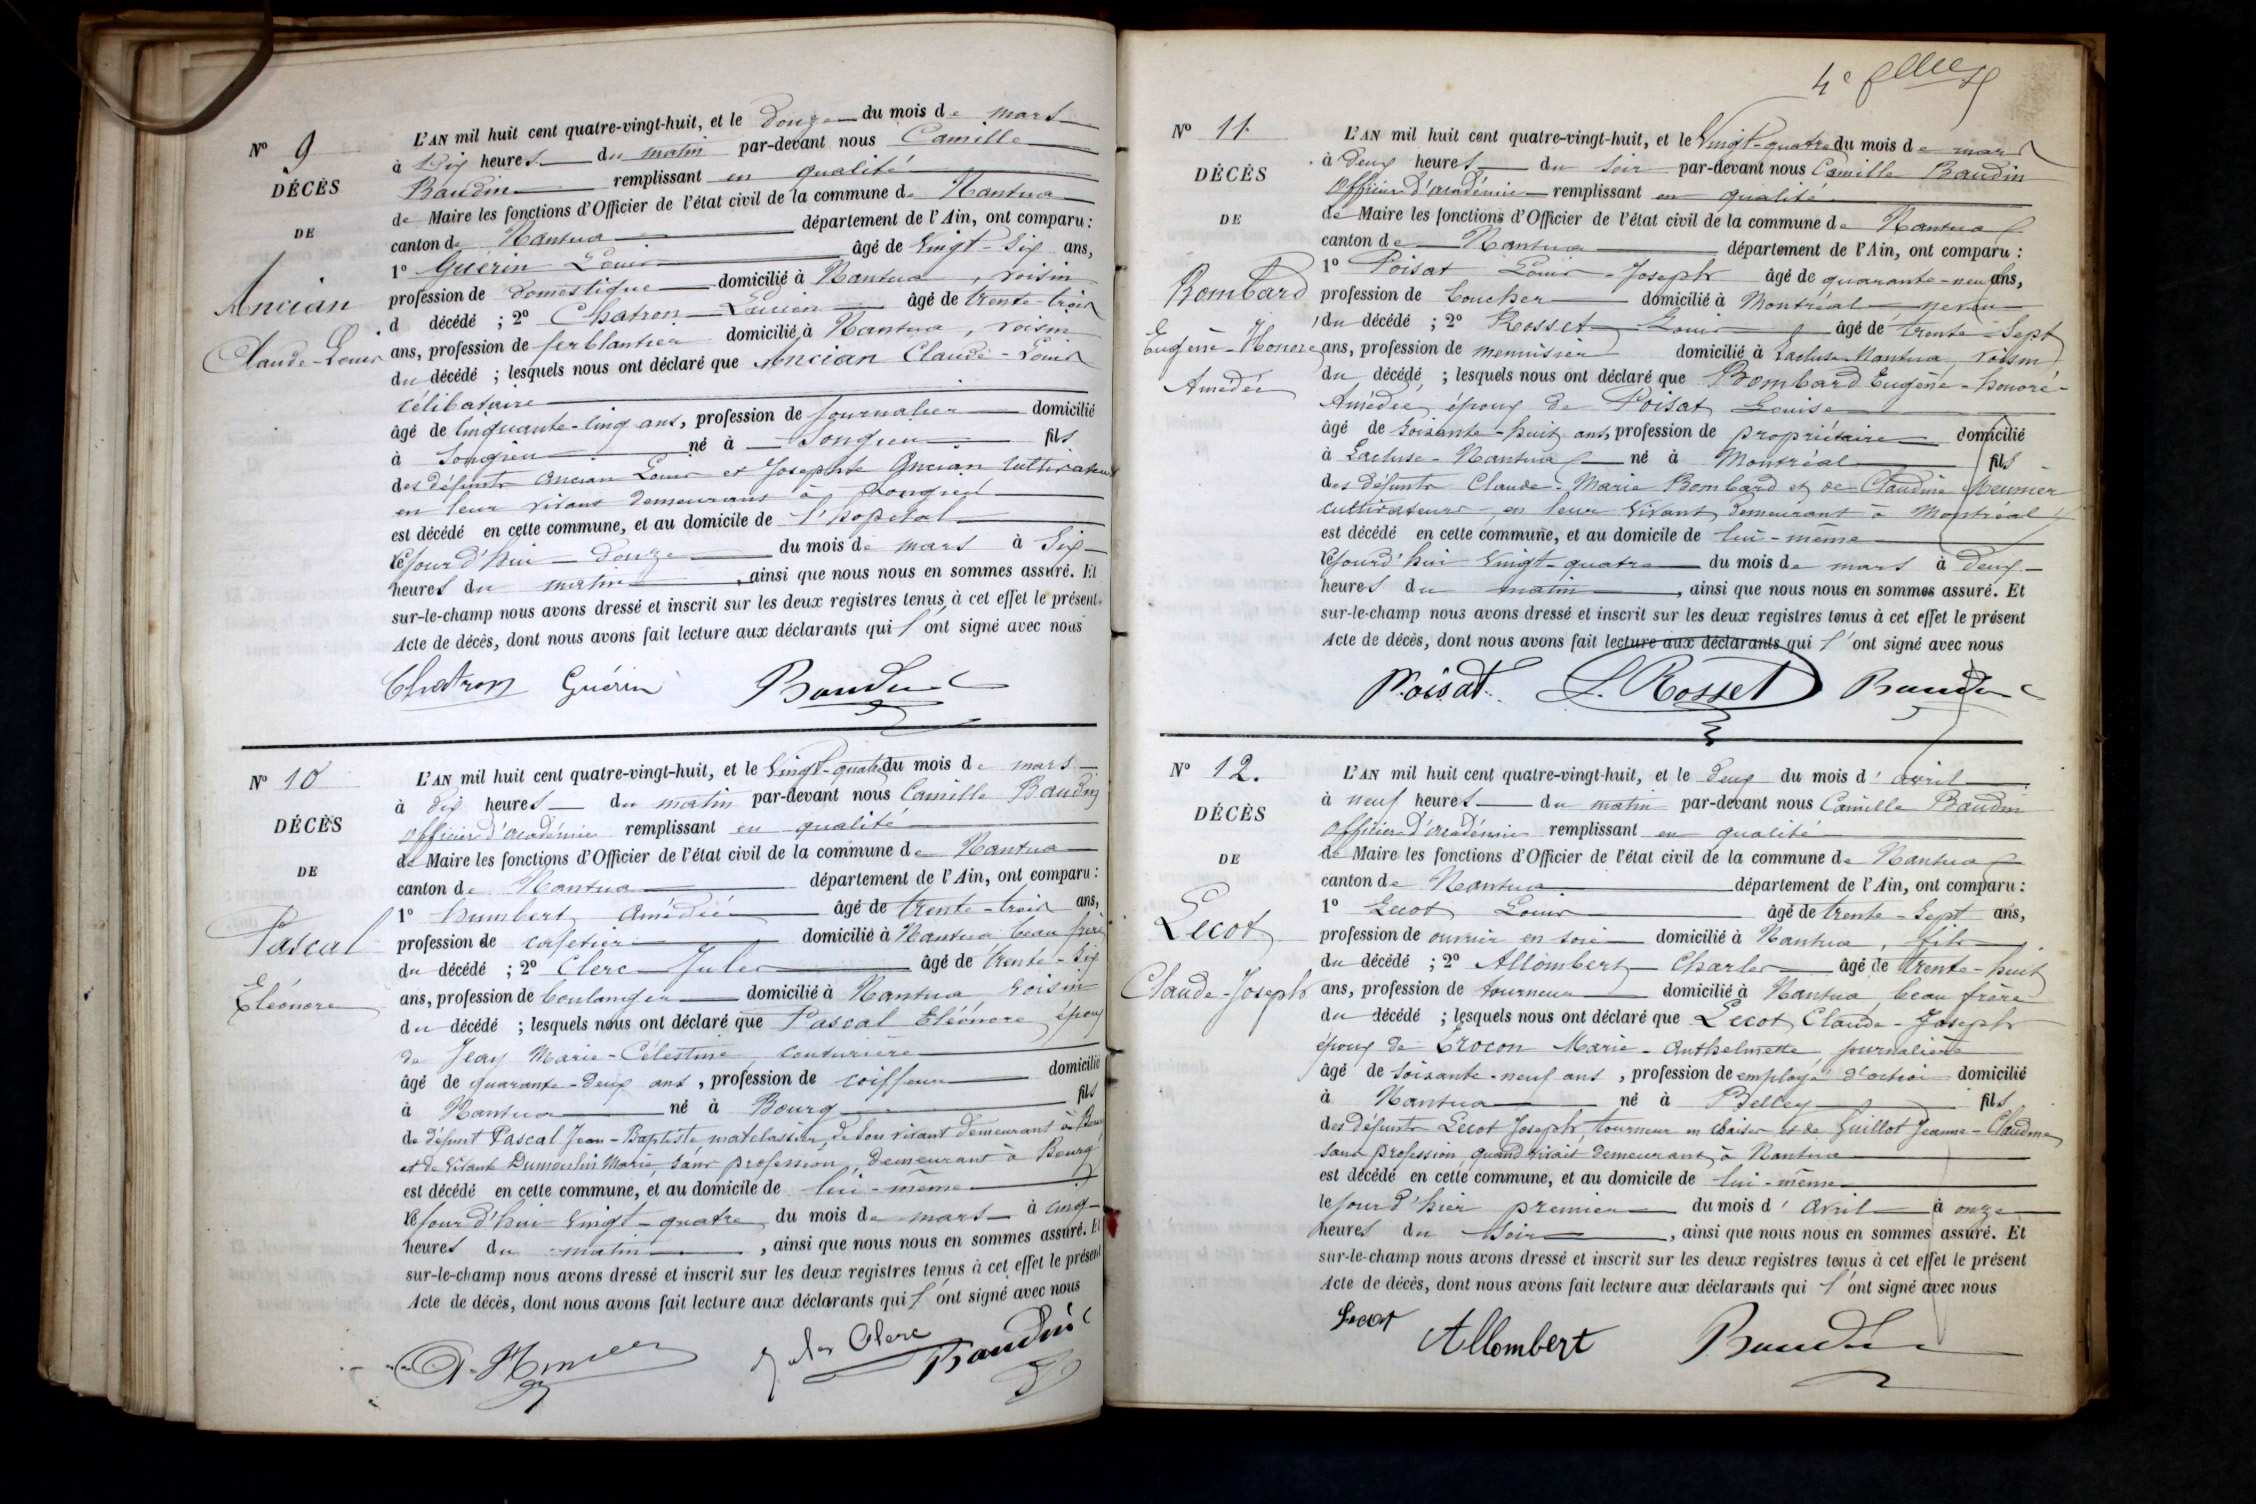 N° 9
DÉCÈS
DE
Ancian
Claude-Louis
L'AN mil huit cent quatre-vingt-huit, et le douze du mois de mars
à dix heures du matin par-devant nous Camille
Baudin remplissant en qualité
de Maire les fonctions d'Officier de l'état civil de la commune de Nantua
canton de Nantua département de l'Ain, ont comparu :
1° Guérin Louis âgé de vingt-six ans,
profession de domestique domicilié à Nantua, voisin
d décédé ; 2° Chatron Lucien âgé de trente-trois
ans, profession de ferblantier domicilié à Nantua, voisin
du décédé ; lesquels nous ont déclaré que Ancian Claude-Louis
célibataire
âgé de cinquante-cinq ans, profession de journalier domicilié
à Songieu né à Songieu fils
des défunts Ancian Louis et Josephte Ancian cultivateurs
en leur vivant demeurant à Songieu
est décédé en cette commune, et au domicile de l'hopital
le jour d'hui douze du mois de mars à six
heures du matin, ainsi que nous nous en sommes assuré. Et
sur-le-champ nous avons dressé et inscrit sur les deux registres tenus à cet effet le présent
Acte de décès, dont nous avons fait lecture aux déclarants qui l'ont signé avec nous
Chatron Guérin Baudin
N° 10
DÉCÈS
DE
Pascal
Eléonore
L'AN mil huit cent quatre-vingt-huit, et le vingt-quatre du mois de mars
à dix heures du matin par-devant nous Camille Baudin
officier d'académie remplissant en qualité
de Maire les fonctions d'Officier de l'état civil de la commune de Nantua
canton de Nantua département de l'Ain, ont comparu :
1° humbert Amédée âgé de trente-trois ans,
profession de cafetier domicilié à Nantua beau frère
du décédé ; 2° Clerc Jules âgé de trente-six
ans, profession de boulanger domicilié à Nantua voisin
du décédé ; lesquels nous ont déclaré que Pascal Eléonore époux
de Jeay Marie-Célestine, couturière
âgé de quarante-deux ans, profession de coiffeur domicilié
à Nantua né à Bourg fils
de défunt Pascal Jean-Baptiste matelassier, de son vivant demeurant à Bourg
et de vivante Dumoulin Marie sans profession, demeurant à Bourg
est décédé en cette commune, et au domicile de lui-même
le jour d'hui vingt-quatre du mois de mars à cinq
heures du matin, ainsi que nous nous en sommes assuré. Et
sur-le-champ nous avons dressé et inscrit sur les deux registres tenus à cet effet le présent
Acte de décès, dont nous avons fait lecture aux déclarants qui l'ont signé avec nous
Jules Clerc Baudin
4e
N° 11
DÉCÈS
DE
Bombard
Eugène-Honoré
Amédée
L'AN mil huit cent quatre-vingt-huit, et le vingt-quatre du mois de mars
à deux heures du soir par-devant nous Camille Baudin
officier d'académie remplissant en qualité
de Maire les fonctions d'Officier de l'état civil de la commune de Nantua
canton de Nantua département de l'Ain, ont comparu :
1° Poisat Louis-Joseph âgé de quarante-neuf ans,
profession de boucher domicilié à Montréal neveu
du décédé ; 2° Rosset Louis âgé de trente-sept
ans, profession de menuisier domicilié à Lacluse-Nantua, voisin
du décédé ; lesquels nous ont déclaré que Bombard Eugène-honoré-
Amédée, époux de Poisat Louise
âgé de soixante-huit ans, profession de propriétaire domicilié
à Lacluse-Nantua né à Montréal fils
des défunts Claude-Marie Bombard et de Claudine Meunier
cultivateurs en leur vivant demeurant à Montréal
est décédé en cette commune, et au domicile de lui-même
le jour d'hui vingt-quatre du mois de mars à deux
heures du matin, ainsi que nous nous en sommes assuré. Et
sur-le-champ nous avons dressé et inscrit sur les deux registres tenus à cet effet le présent
Acte de décès, dont nous avons fait lecture aux déclarants qui l'ont signé avec nous
Poisat L. Rosset Baudin
N° 12.
DÉCÈS
DE
Lecot
Claude-Joseph
L'AN mil huit cent quatre-vingt-huit, et le deux du mois d'avril
à neuf heures du matin par-devant nous Camille Baudin
officier d'académie remplissant en qualité
de Maire les fonctions d'Officier de l'état civil de la commune de Nantua
canton de Nantua département de l'Ain, ont comparu :
1° Lecot Louis âgé de trente-sept ans,
profession de ouvrier en soie domicilié à Nantua, fils
du décédé ; 2° Allombert Charles âgé de trente-huit
ans, profession de tourneur domicilié à Nantua beau frère
du décédé ; lesquels nous ont déclaré que Lecot Claude-Joseph
époux de Crocon Marie-Anthelmette, journalière
âgé de soixante-neuf ans, profession de employé d'octroi domicilié
à Nantua né à Belley fils
des défunts Lecot Joseph, tourneur en chaises et de Guillot Jeanne-Claudine
sans profession quand vivait demeurant à Nantua
est décédé en cette commune, et au domicile de lui-même
le jour d'hier premier du mois d'Avril à onze
heures du soir, ainsi que nous nous en sommes assuré. Et
sur-le-champ nous avons dressé et inscrit sur les deux registres tenus à cet effet le présent
Acte de décès, dont nous avons fait lecture aux déclarants qui l'ont signé avec nous
Lecot Allombert Baudin